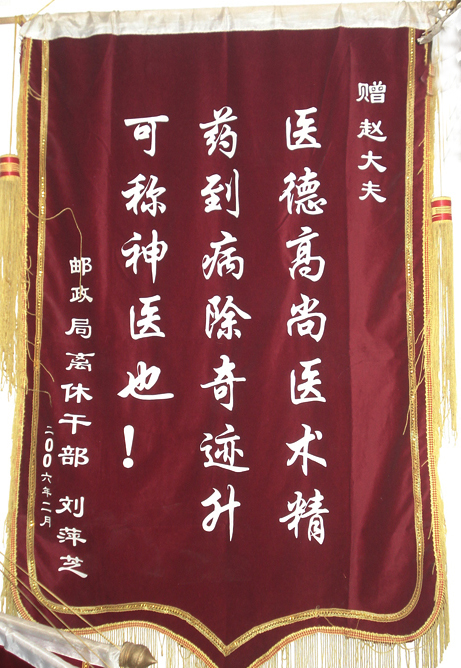 赠赵大夫
医德高尚医术精
药到病除奇迹升
可称神医也！
邮政局离休干部 刘萍芝
二00六年二月